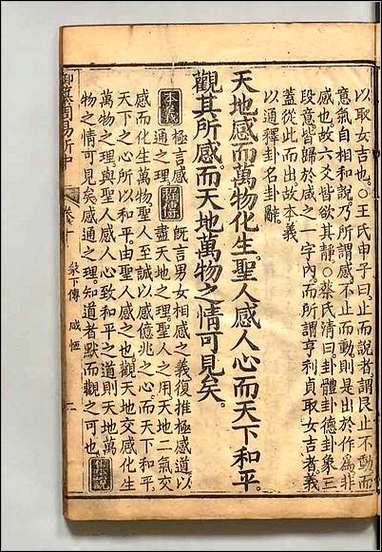 以取女吉也。○王氏申子曰。止而說者。謂艮止不動。而
意氣自相和說。乃所謂感。不止而動。則是出於作為非
感也。故六爻皆欲其靜。○蔡氏清曰。卦體卦德卦象三
段意。皆歸於咸之一字内。而所謂亨利貞取女吉者。義
蓋從此而出。故本義
以通釋卦名卦辭。
天地感而萬物化生。聖人感人心而天下和平。
觀其所感。而天地萬物之情可見矣。
本義 極言感
通之理。程傳 既言男女相感之義。復推極感道。以
盡天地之理。聖人之用。天地二氣交
感而化生萬物。聖人至誠以感億兆之心。而天下和平。
天下之心所以和平。由聖人感之也。觀天地交感化生
萬物之理。與聖人感人心致和平之道。則天地萬
物之情可見矣。感通之理。知道者默而觀之可也。集說
御纂周易折中
卷十 彖下傳 咸 恆 二